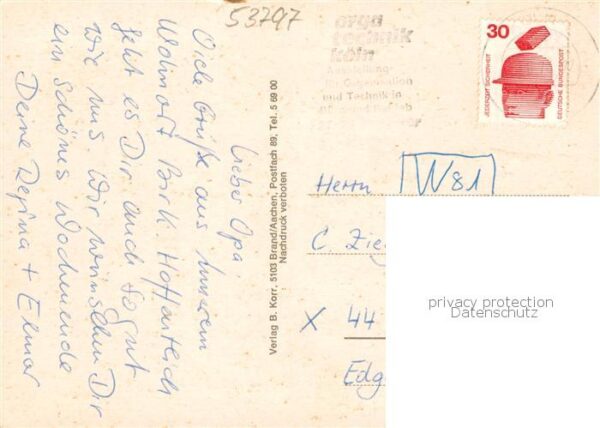 53797
orga
technik
köln
Ausstellung
für Organisation
und Technik in
30
JEDERZEIT SICHERHEIT
DEUTSCHE BUNDESPOST
Lieber Opa
Viele Grüße aus unserem
Wohnort
geht es Dir auch so gut
wie uns. Wir wünschen Dir
ein schönes Wochenende
Deine Regina + Elmar
Verlag B. Korr, 5103 Brand/Aachen, Postfach 89, Tel. 5 69 00
Nachdruck verboten
Herrn W81
C. Zieg
X 44
Edg
privacy protection
Datenschutz